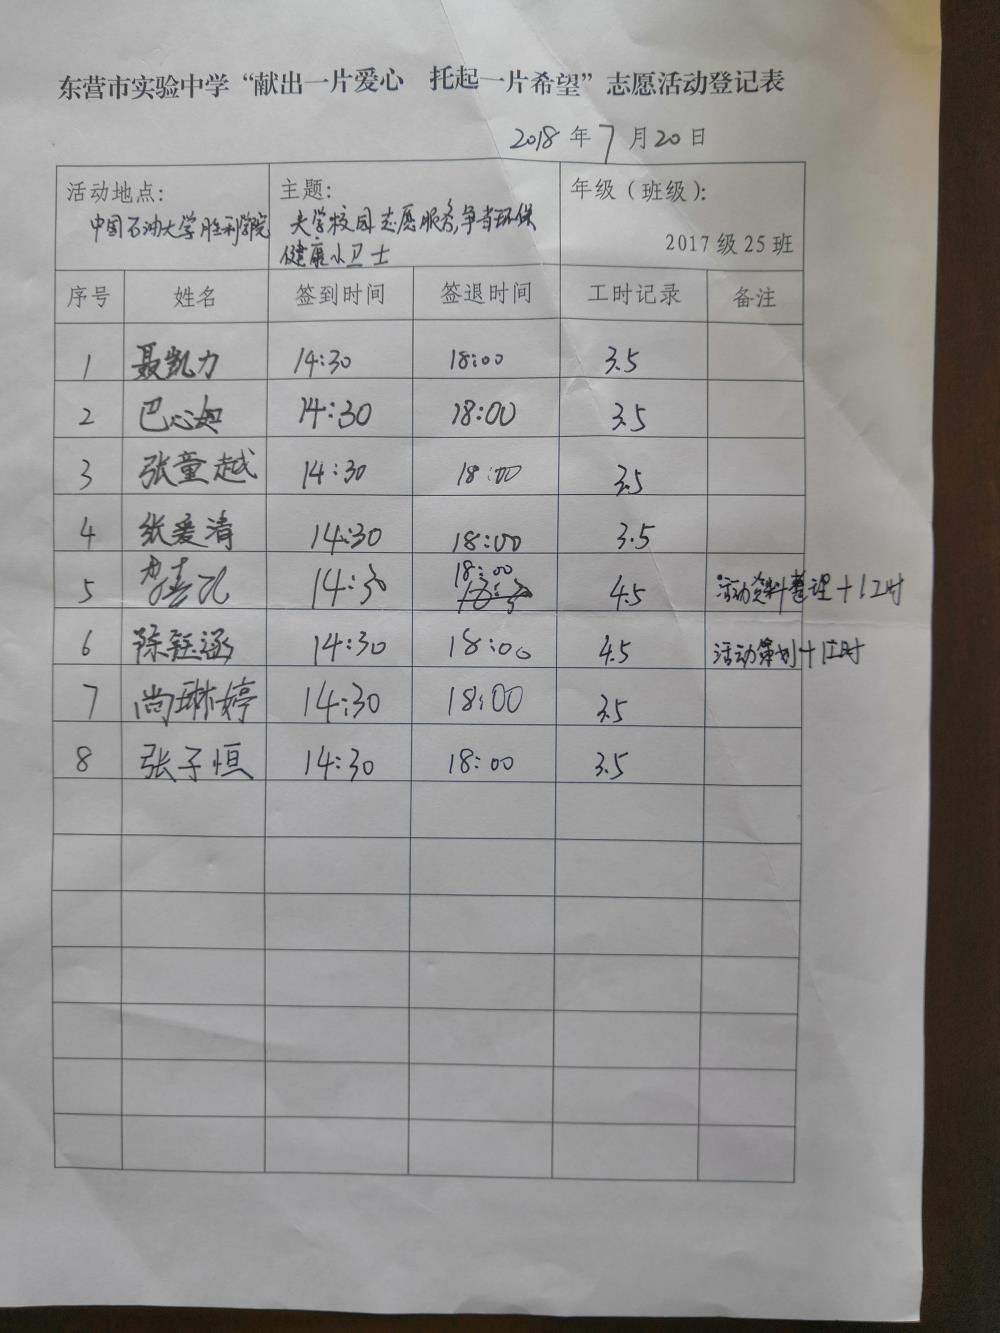 东营市实验中学“献出一片爱心 托起一片希望”志愿活动登记表
2018年7月20日
活动地点: 主题: 年级（班级）:
中国石油大学胜利学院 大学校园志愿服务,争当环保
健康小卫士 2017级25班
序号 姓名 签到时间 签退时间 工时记录 备注
1 聂凯力 14:30 18:00 3.5
2 巴心如 14:30 18:00 3.5
3 张童越 14:30 18:00 3.5
4 张爱清 14:30 18:00 3.5
5 14:30 18:00 4.5 活动资料整理+1工时
6 陈钰涵 14:30 18:00 4.5 活动策划+1工时
7 尚琳婷 14:30 18:00 3.5
8 张子恒 14:30 18:00 3.5